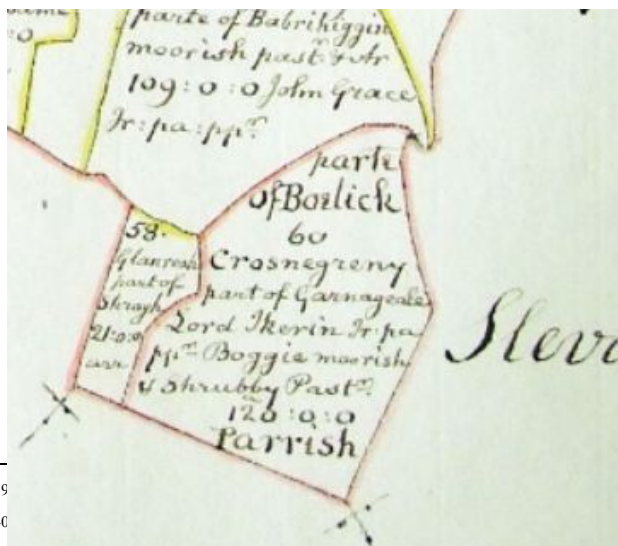 parte of Babrikiggin
moorish past:
109:0:0 John Grace
Ir:pa:ppr
parte
of Boilick
60
Crosnegreny
part of Garnageale
Lord Ikerin Ir:pa
ppr Boggie moorish
& Shrubby Past:
120:0:0
Parrish
58.
Glanreah
part of
Shragh
21:0:0
arr
Sleva